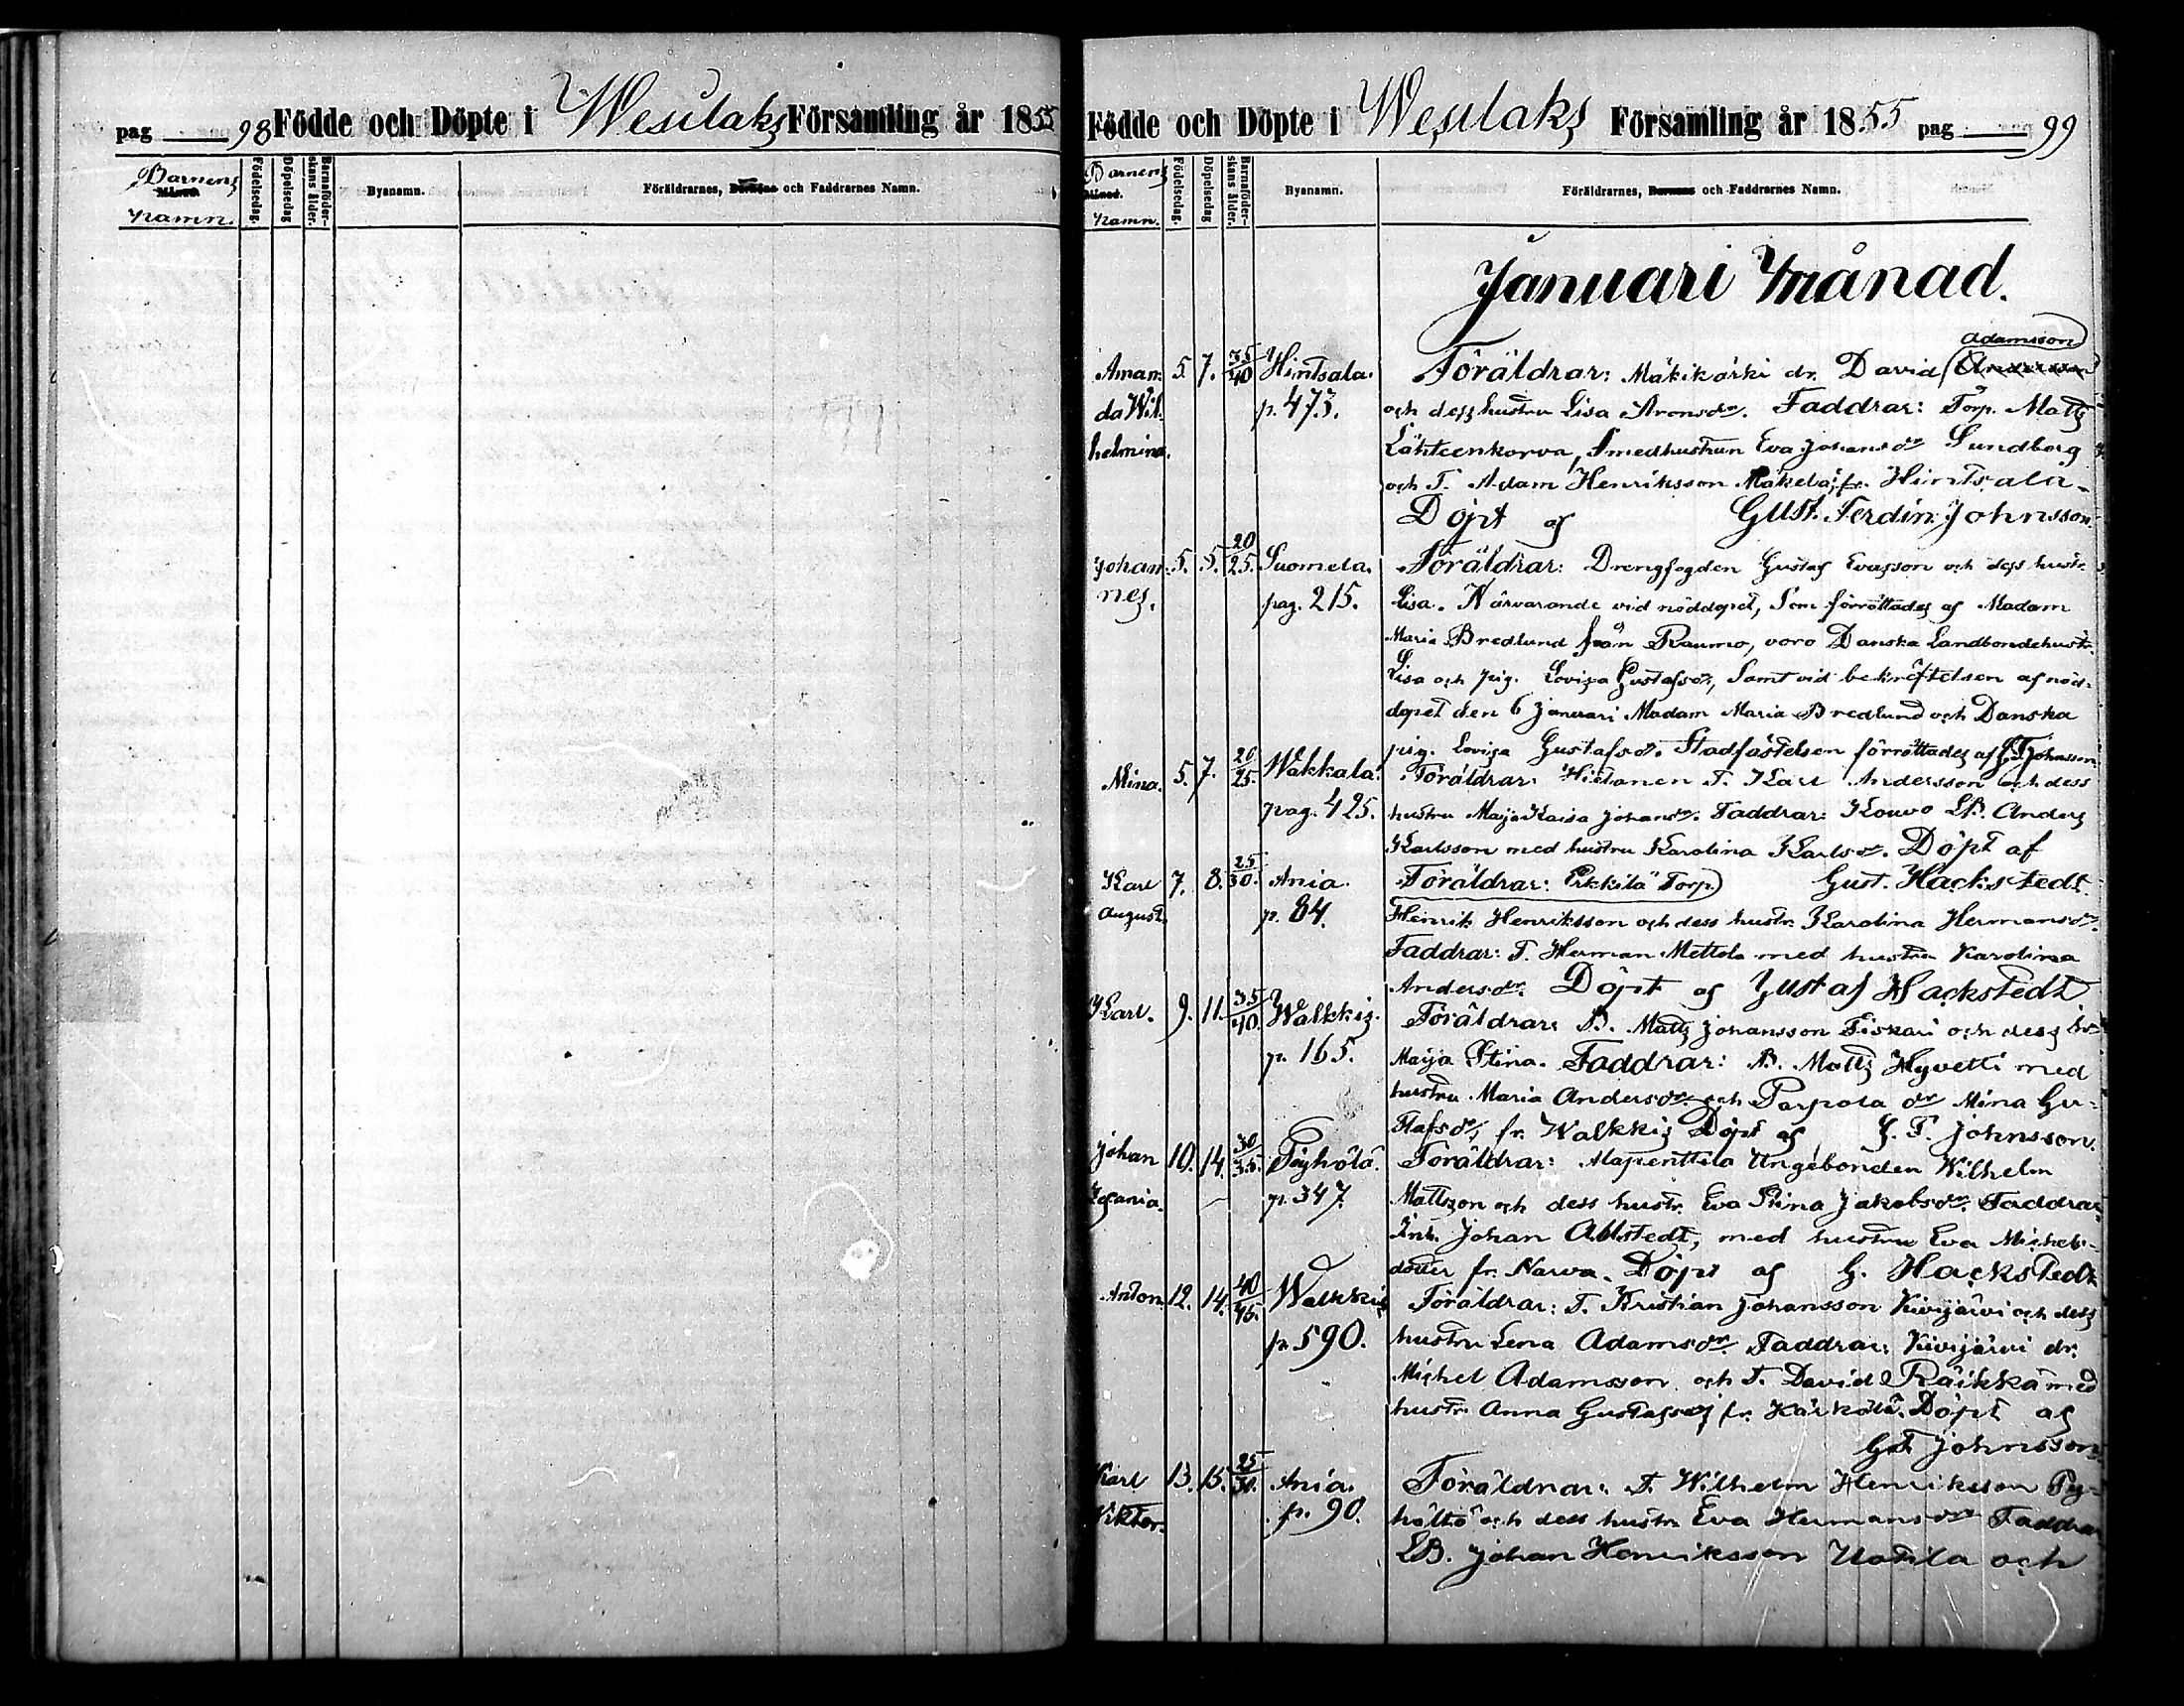 pag 98 Födde och Döpte i Wesilaks Församling år 1855
Barnens Månad Namn.
Födelsedag.
Döpelsedag
Barnaföderskans ålder.
Byanamn.
Föräldrarnes, Barnens och Faddrarnes Namn.
Födde och Döpte i Wesilaks Församling år 1855 pag 99
Barnens Månad. Namn.
Födelsedag.
Döpelsedag
Barnaföderskans ålder.
Byanamn.
Föräldrarnes, Barnens och Faddrarnes Namn.
Januari Månad.
Adamsson
Aman- 5. 7. 35/40 Hintsala. Föräldrar: Mäkikärki dr. David Andersson
da Wil- p. 473. och dess hustru Lisa Aronsdr. Faddrar: Torp. Matts
helmina. Lähteenkorva, Smedhustrun Eva Johansdr Sundberg
och T. Adam Henriksson Mäkelä, fr. Hintsala.
Döpt af Gust. Ferdin. Johnsson.
Johan- 5. 5. 20/25. Suomela. Föräldrar: Drengfogden Gustaf Evasson och dess hustr.
nes. pag. 215. Lisa. Närvarande vid nöddopet, som förrättades af Madam
Maria Bredlund från Raumo, voro Danska Landbondehustr.
Lisa och pig. Lovisa Gustafsdr, samt vid bekräftelsen af nöd-
dopet den 6 Januari Madam Maria Bredlund och Danska
pig. Lovisa Gustafsdr. Stadfästelsen förrättades af G.F. Johnsson.
Mina. 5. 7. 20/25. Wakkala. Föräldrar: Hietanen T. Karl Andersson och dess
pag. 425. hustru Maja Kaisa Johansdr. Faddrar: Kouvo LB. Anders
Karlsson med hustru Karolina Karlsdr. Döpt af
Karl 7. 8. 25/30. Ania. Föräldrar: Erkkilä Torp. Gust. Hackstedt.
August. p. 84. Henrik Henriksson och dess hustr. Karolina Hermansdr.
Faddrar: T. Herman Mettola med hustru Karolina
Andersdr. Döpt af Gustaf Hackstedt
Karl. 9. 11. 35/40. Walkkis. Föräldrar: B. Matts Johansson Fiskari och dess hr
p. 165. Maija Stina. Faddrar: B. Matts Hyvetti med
hustru Maria Andersdr. och Parpola dr Mina Gu-
stafsdr, fr. Walkkis Döpt af G. F. Johnsson.
Johan 10. 14. 30/35. Pöyhölä. Föräldrar: Alapenttilä Ungebonden Wilhelm
p. 347. Mattsson och dess hustr. Eva Stina Jakobsdr. Faddrar
Inh. Johan Allstedt, med hustru Eva Michels-
dotter fr. Narva. Döpt af G. Hackstedt
Anton 12. 14. 40/45. Walkkis Föräldrar: T. Kristian Johansson Kivijärvi och dess
p. 590. hustru Lena Adamsdr. Faddrar: Kivijärvi dr.
Michel Adamsson och T. David Räikkä med
hustr. Anna Gustafsdr, fr. Kärkölä. Döpt af
G.F. Johnsson
Karl 13. 15. 25/30. Ania. Föräldrar: T. Wilhelm Henriksson Py-
Viktor. p. 90. hältö och dess hustr. Eva Hermansdr Faddrar
LB. Johan Henriksson Uotila och